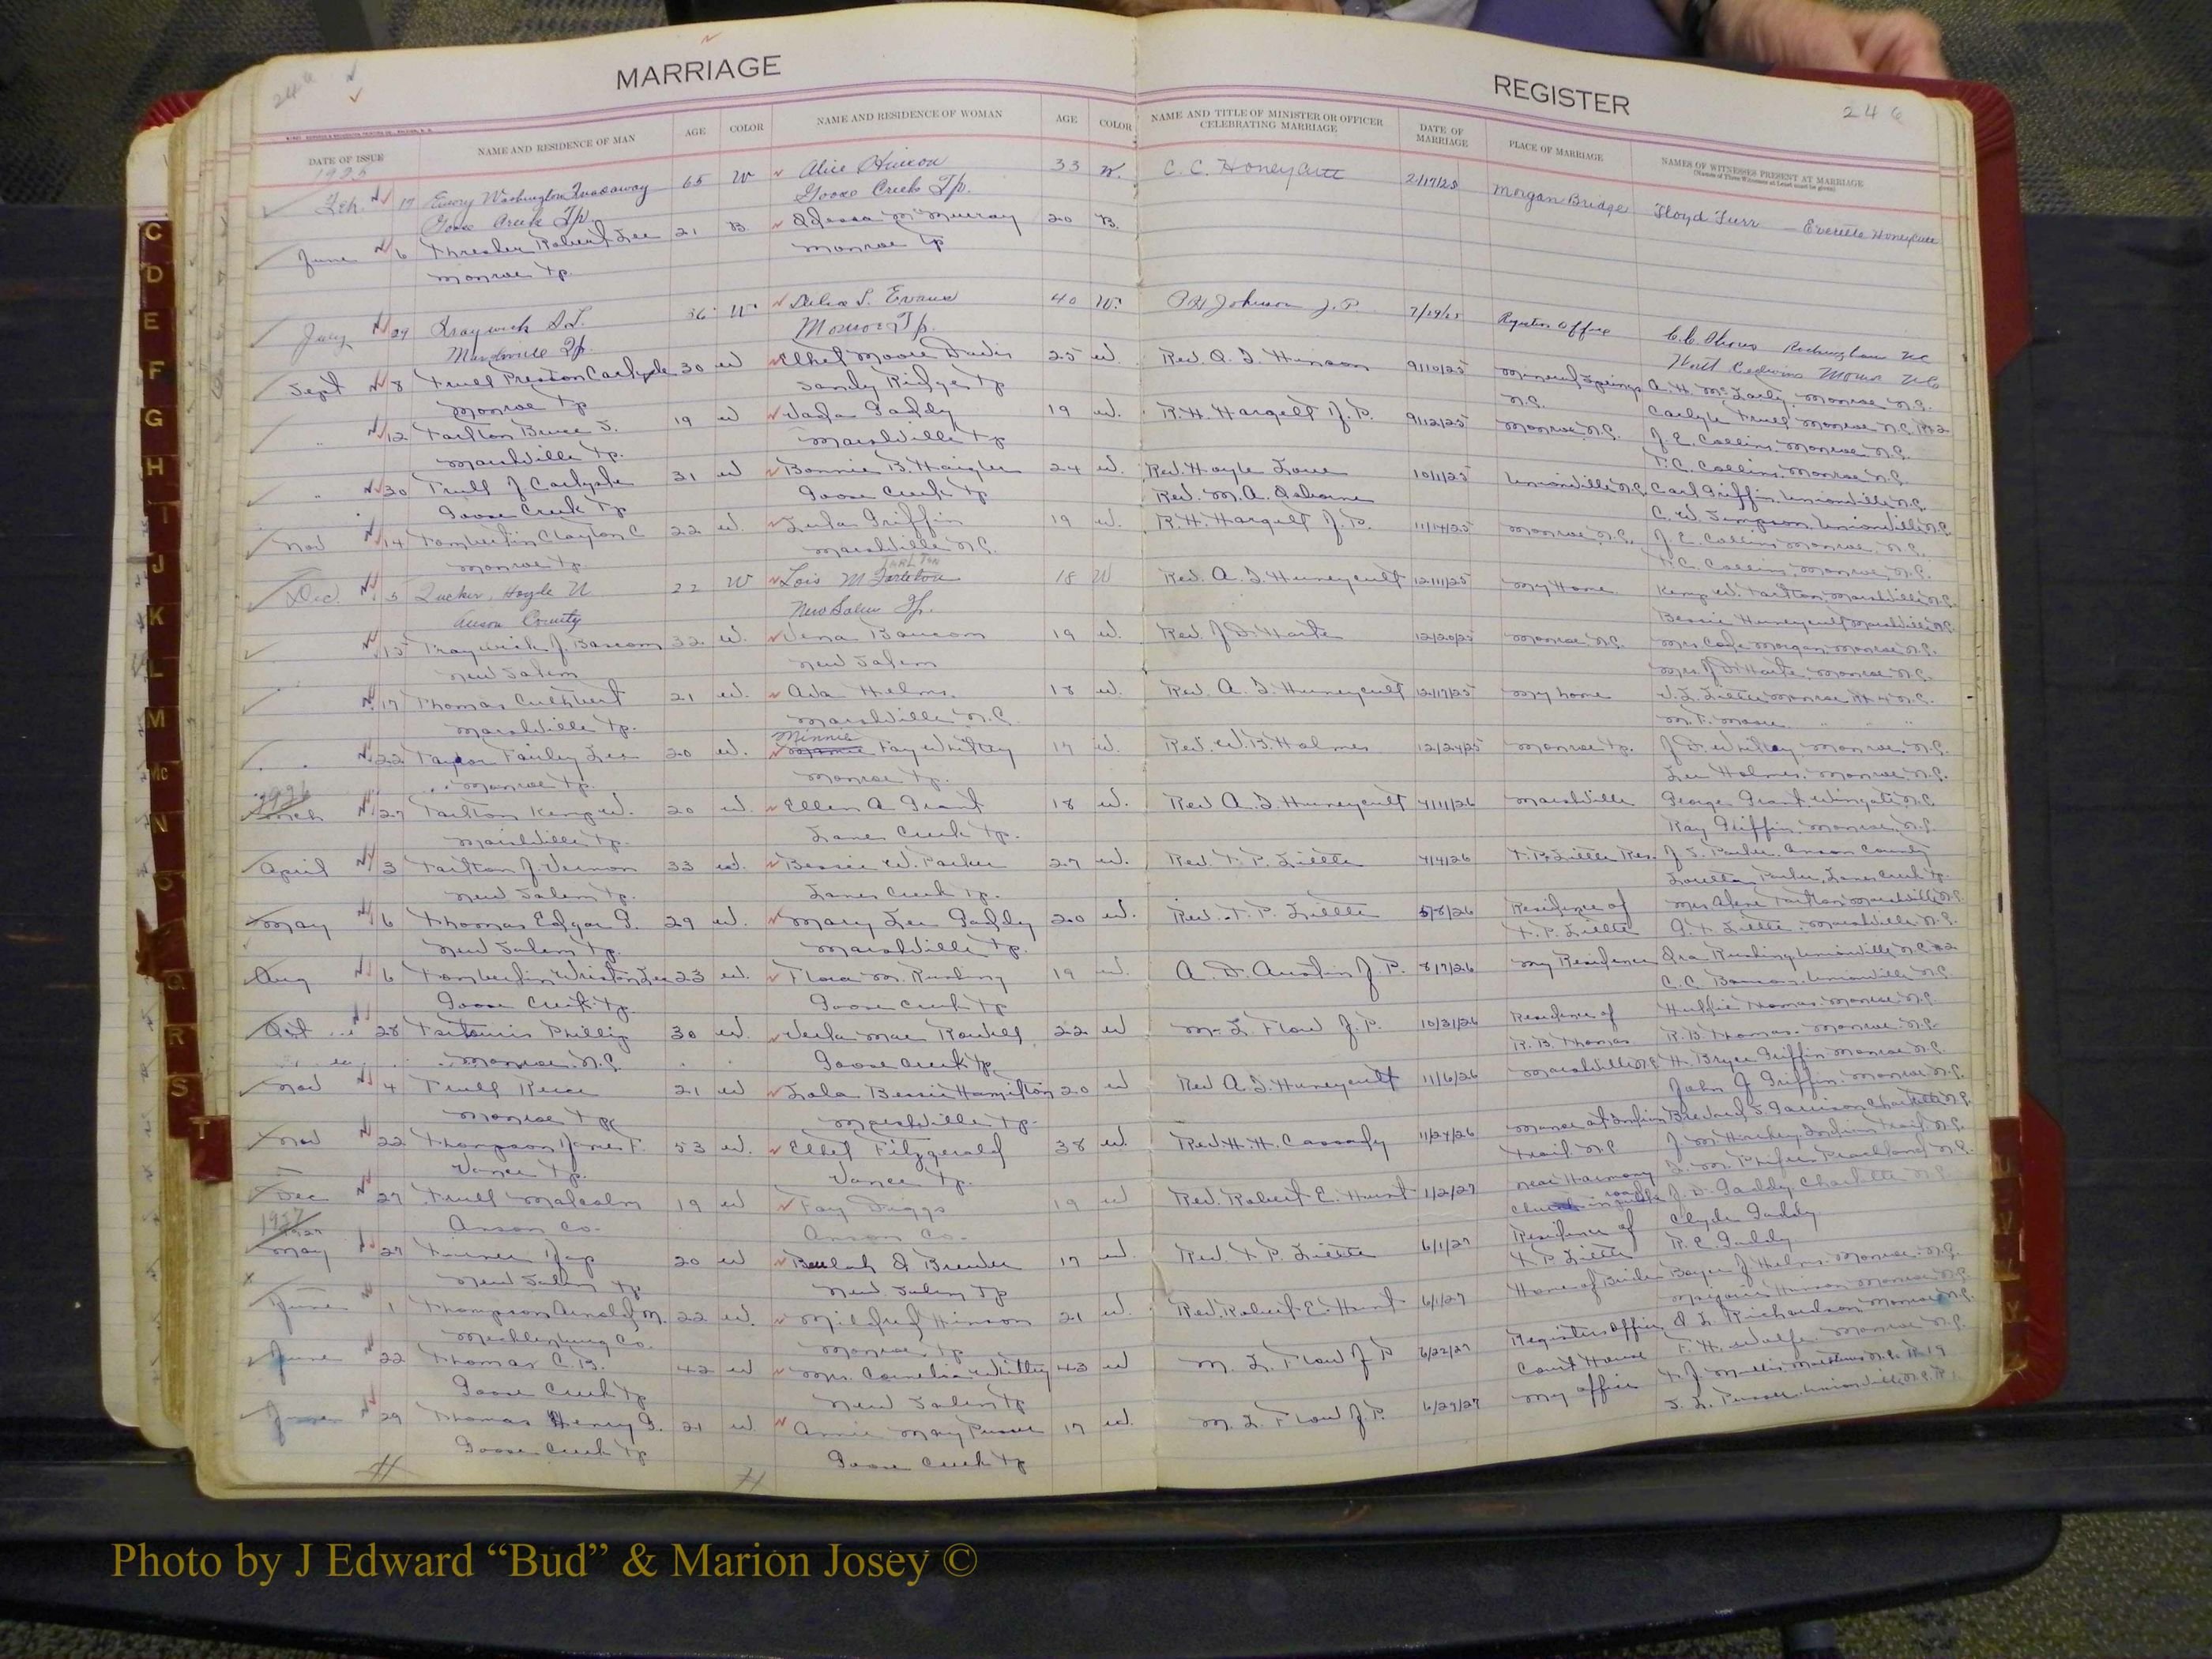 MARRIAGE
REGISTER
246
246
DATE OF ISSUE NAME AND RESIDENCE OF MAN AGE COLOR NAME AND RESIDENCE OF WOMAN AGE COLOR NAME AND TITLE OF MINISTER OR OFFICER CELEBRATING MARRIAGE DATE OF MARRIAGE PLACE OF MARRIAGE NAMES OF WITNESSES PRESENT AT MARRIAGE
(Names of Three Witnesses at Least must be given)
1925
Feb. 17 Emory Washington 65 W Alice 33 W. C. C. Honeycutt 2/17/25 Morgan Bridge Floyd Furr — Everette Honeycutt
Goose Creek Tp. Goose Creek Tp.
June 6 Thresher Robert Lee 21 B. Odessa McMurray 20 B.
Monroe Tp. Monroe Tp
July 29 Traywick S.L. 36 W. Evans 40 W. Johnson J.P. 7/29/25 Register Office
Marshville Tp. Monroe Tp. Monroe N.C.
Sept 8 Trull Preston Carlyle 30 W Ethel Moore Davis 25 W. Rev. Q. L. Hinson 9/10/25 Mineral Springs A. H. Monroe N.C.
Monroe Tp Sandy Ridge Tp N.C. Carlyle Trull Monroe N.C. R#2
12 Tarlton Bruce S. 19 W Gaddy 19 W. R. H. Hargett J.P. 9/12/25 Monroe, N.C. J. E. Collins, Monroe N.C.
Marshville Tp. Marshville Tp T. C. Collins, Monroe N.C.
30 Trull J Carlyle 31 W Bonnie B. Haigler 24 W. Rev. Hoyle Love 10/1/25 Unionville N.C. Carl Griffin, Unionville N.C.
Goose Creek Tp Goose Creek Tp Rev. M. A. Osborne C. W. Simpson, Unionville N.C.
Nov 14 Tomberlin Clayton C 22 W. Lula Griffin 19 W. R. H. Hargett J.P. 11/14/25 Monroe, N.C. J. E. Collins, Monroe, N.C.
Monroe Tp Marshville N.C. T. C. Collins, Monroe, N.C.
Dec. 5 Tucker, Hoyle U 22 W Lois M Tarleton 18 W Rev. A. L. Huneycutt 12/11/25 My Home Kemp W. Tarlton, Marshville N.C.
Anson County New Salem Tp. Bessie Huneycutt Marshville N.C.
15 Traywick J. Bascom 32 W. Vena Baucom 19 W. Rev. J D. Harte 12/20/25 Monroe N.C. Mrs Morgan, Monroe N.C.
New Salem New Salem Mrs J D. Harte, Monroe N.C.
17 Thomas Cuthbert 21 W. Ada Helms 18 W. Rev. A. L. Huneycutt 12/17/25 My home Monroe N.C.
Marshville Tp. Marshville N.C. M. F. Moore " " "
22 Taylor Fairley Lee 20 W. Minnie Fay Whitley 17 W. Rev. W. B. Holmes 12/24/25 Monroe Tp. J. D. Whitley Monroe, N.C.
Monroe Tp. Monroe Tp. Lee Holmes, Monroe, N.C.
1926
March 27 Tarlton Kemp W. 20 W. Ellen A Grant 18 W. Rev A. L. Huneycutt 4/11/26 Marshville George Grant, Wingate N.C.
Marshville Tp. Lanes Creek Tp. Ray Griffin, Monroe, N.C.
April 3 Tarlton J. Vernon 33 W. Bessie W. Parker 27 W. Rev. T. P. Little 4/4/26 T. P. Little Res. J. S. Parker, Anson County
New Salem Tp. Lanes Creek Tp. Loretta Parker, Lanes Creek Tp.
May 6 Thomas Edgar G. 29 W. Mary Lee Gaddy 20 W. Rev. T. P. Little 5/8/26 Residence of Mrs Tarlton Marshville N.C.
New Salem Tp. Marshville Tp. T. P. Little Little, Marshville N.C.
Aug 6 Tomberlin Lee 23 W. Flora M. Rushing 19 W. A. D. Austin J.P. 8/7/26 My Residence Ira Rushing Unionville N.C. #2
Goose Creek Tp. Goose Creek Tp C. C. Unionville N.C.
Oct 28 Phillip 30 W. Mae Rowell 22 W M. L. Flow J.P. 10/31/26 Residence of Thomas, Monroe N.C.
Monroe N.C. Goose Creek Tp R. B. Thomas R. B. Thomas, Monroe N.C.
Nov 4 Trull 21 W Lola Bessie Hamilton 20 W Rev A. L. Huneycutt 11/6/26 Marshville N.C. H. Bryce Griffin Monroe N.C.
Monroe Tp Marshville Tp. John J Griffin, Monroe N.C.
Nov 22 Thompson James F. 53 W. Ethel Fitzgerald 38 W. Rev. H. H. Cassady 11/24/26 Manse at Indian Garrison, Charlotte N.C.
Vance Tp. Vance Tp. Trail N.C. Indian Trail N.C.
Dec 27 Trull Malcolm 19 W Fay Diggs 19 W Rev. Robert E. Hunt 1/2/27 near Harmony L. M. Phifer Peachland N.C.
Anson Co. Anson Co. Church J. D. Gaddy Charlotte N.C.
1927
May 27 Turner Jap 20 W Beulah Brewer 17 W. Rev. T. P. Little 6/1/27 Residence of Clyde Gaddy
New Salem Tp New Salem Tp T. P. Little R. C. Gaddy
June 1 Thompson Arnold M. 22 W. Mildred Hinson 21 W. Rev. Robert E. Hunt 6/1/27 Home of Bride J Helms, Monroe N.C.
Mecklenburg Co. Monroe, Tp Hinson Monroe N.C.
June 22 Thomas C. B. 42 W Mrs. Cornelia Whitley 43 W M. L. Flow J P 6/22/27 Registers Office Richardson Monroe N.C.
Goose Creek Tp New Salem Tp Court House F. H. Wolfe Monroe N.C.
June 29 Thomas Henry G. 21 W. Annie May 17 W. M. L. Flow J.P. 6/29/27 My office Matthews N.C. R 19
Goose Creek Tp Goose Creek Tp Unionville N.C. R 1
C
D
E
F
G
H
I
J
K
L
M
Mc
N
O
Q
R
S
T
U
V
W
Y
Photo by J Edward “Bud” & Marion Josey ©